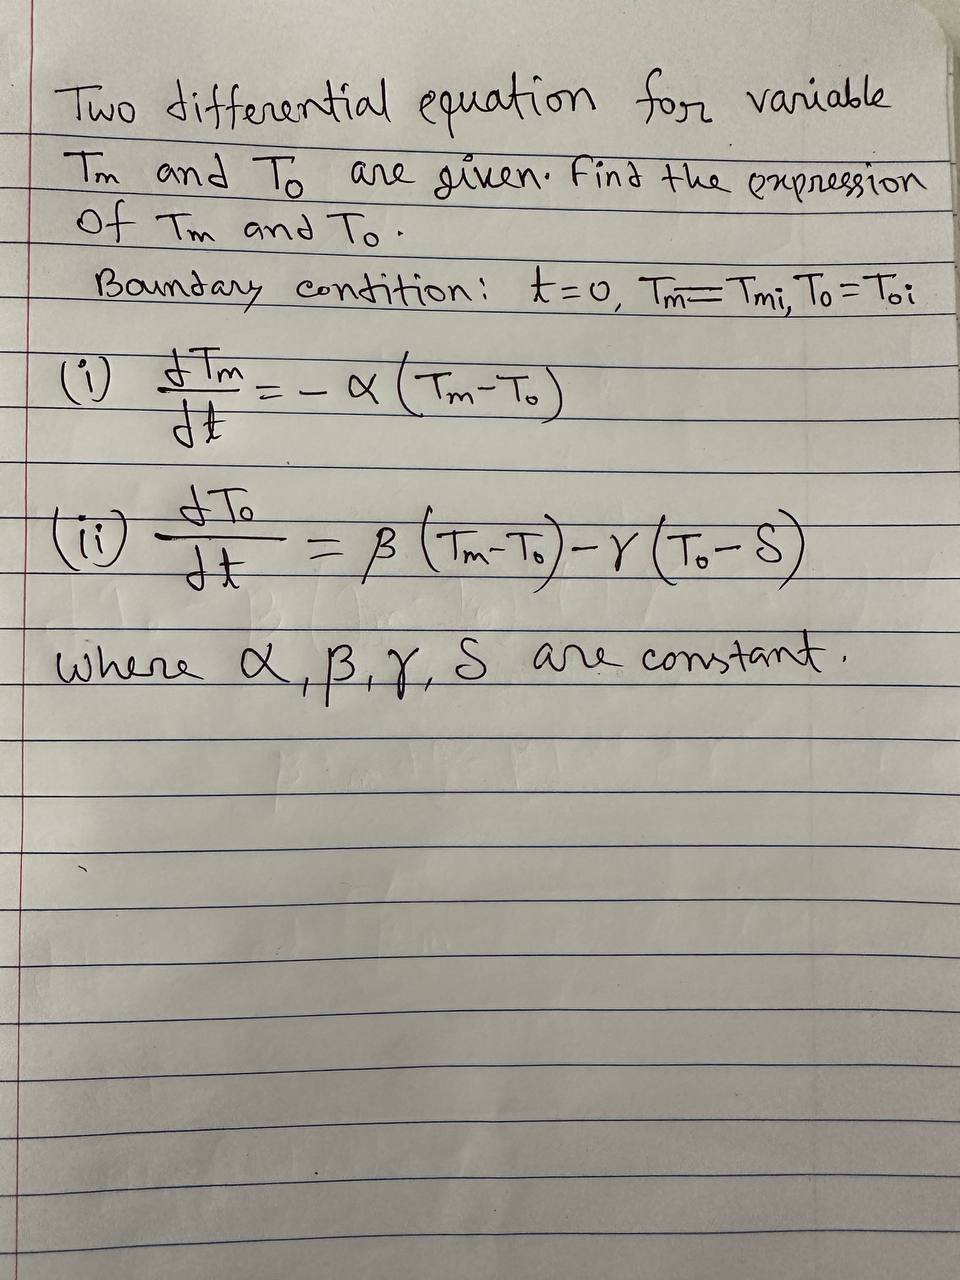 Two differential equation for variable
Tm and To are given. Find the expression
Of Tm and To.
Boundary condition: t=0, Tm=Tmi, To=Toi
(i) dTm/dt = -α(Tm-To)
(ii) dTo/dt = β(Tm-To)-γ(To-δ)
where α, β, γ, δ are constant.